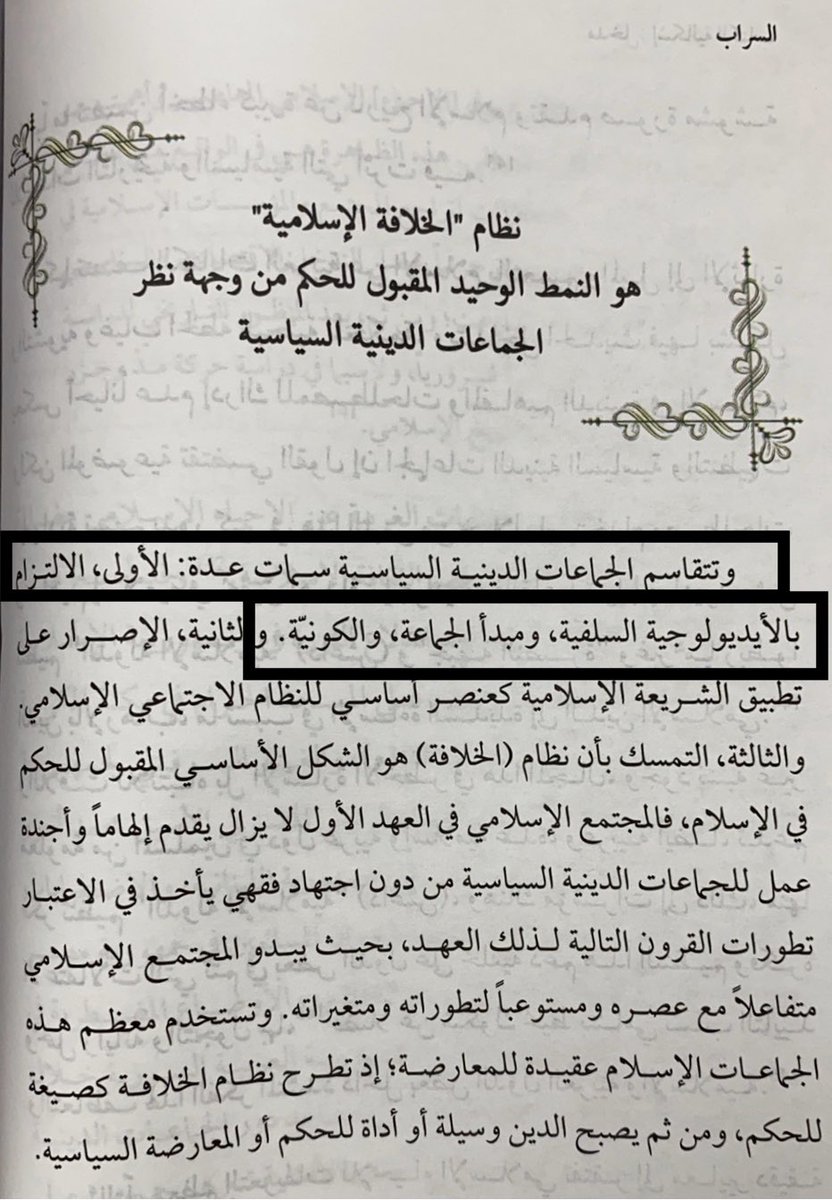 السراب
نظام "الخلافة الإسلامية"
هو النمط الوحيد المقبول للحكم من وجهة نظر
الجماعات الدينية السياسية
وتتقاسم الجماعات الدينية السياسية سمات عدة: الأولى، الالتزام
بالأيديولوجية السلفية، ومبدأ الجماعة، والكونيّة. والثانية، الإصرار على
تطبيق الشريعة الإسلامية كعنصر أساسي للنظام الاجتماعي الإسلامي.
والثالثة، التمسك بأن نظام (الخلافة) هو الشكل الأساسي المقبول للحكم
في الإسلام، فالمجتمع الإسلامي في العهد الأول لا يزال يقدم إلهاماً وأجندة
عمل للجماعات الدينية السياسية من دون اجتهاد فقهي يأخذ في الاعتبار
تطورات القرون التالية لذلك العهد، بحيث يبدو المجتمع الإسلامي
متفاعلاً مع عصره ومستوعباً لتطوراته ومتغيراته. وتستخدم معظم هذه
الجماعات الإسلام عقيدة للمعارضة؛ إذ تطرح نظام الخلافة كصيغة
للحكم، ومن ثم يصبح الدين وسيلة أو أداة للحكم أو المعارضة السياسية.